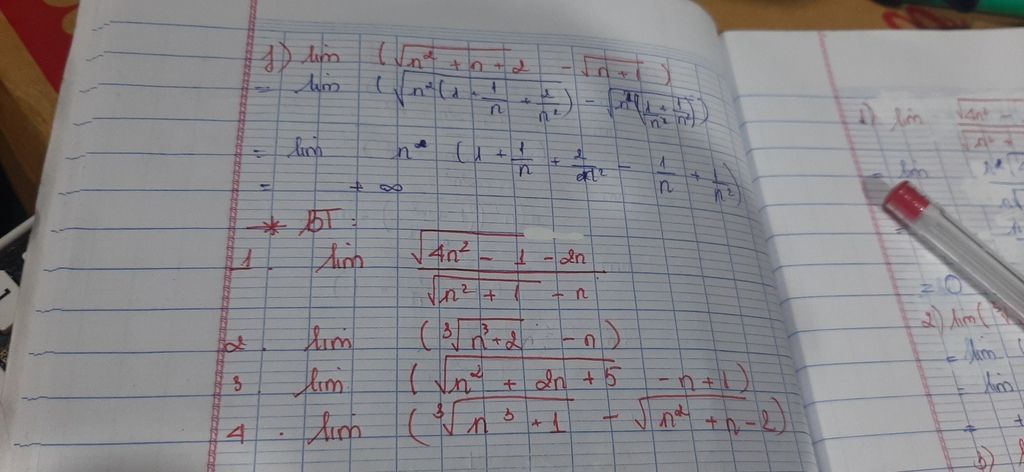 f) lim (√(n² + n + 2) - √(n + 1))
= lim (√(n²(1 + 1/n + 2/n²)) - √(n²(1/n² + 1/n²)))
= lim n² (1 + 1/n + 2/n² - 1/n + 1/n²)
= + ∞
* BT:
1. lim (√(4n² - 1) - 2n)/(√(n² + 1) - n)
2. lim (³√(n³ + 2) - n)
3. lim (√(n² + 2n + 5) - n + 1)
4. lim (³√(n³ + 1) - √(n² + n - 2))
1) lim
= lim
= 0
2) lim (
= lim
= lim
= +
3)